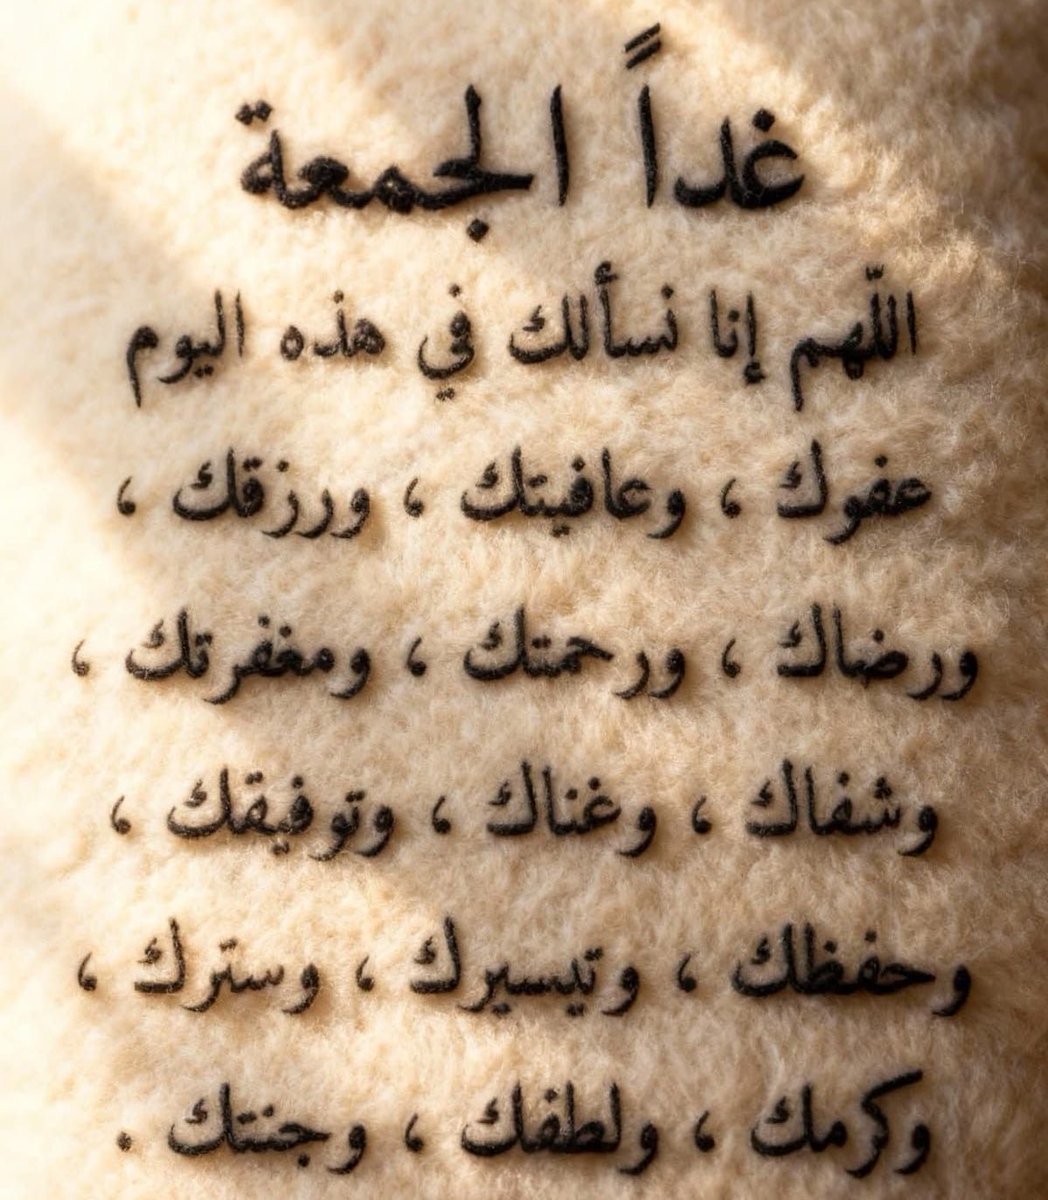 غداً الجمعة
اللّهم إنا نسألك في هذه اليوم
عفوك ، وعافيتك ، ورزقك ،
ورضاك ، ورحمتك ، ومغفرتك ،
وشفاك ، وغناك ، وتوفيقك ،
وحفظك ، وتيسيرك ، وسترك ،
وكرمك ، ولطفك ، وجنتك .